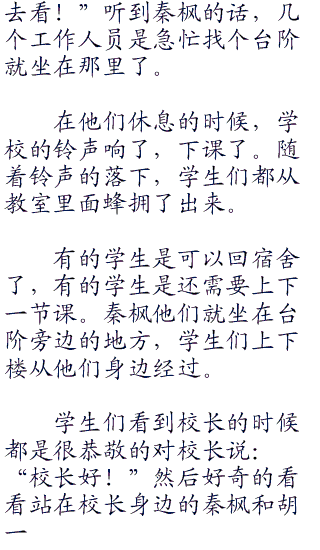 去看！”听到秦枫的话，几
个工作人员是急忙找个台阶
就坐在那里了。
在他们休息的时候，学
校的铃声响了，下课了。随
着铃声的落下，学生们都从
教室里面蜂拥了出来。
有的学生是可以回宿舍
了，有的学生是还需要上下
一节课。秦枫他们就坐在台
阶旁边的地方，学生们上下
楼从他们身边经过。
学生们看到校长的时候
都是很恭敬的对校长说：
“校长好！”然后好奇的看
看站在校长身边的秦枫和胡
一